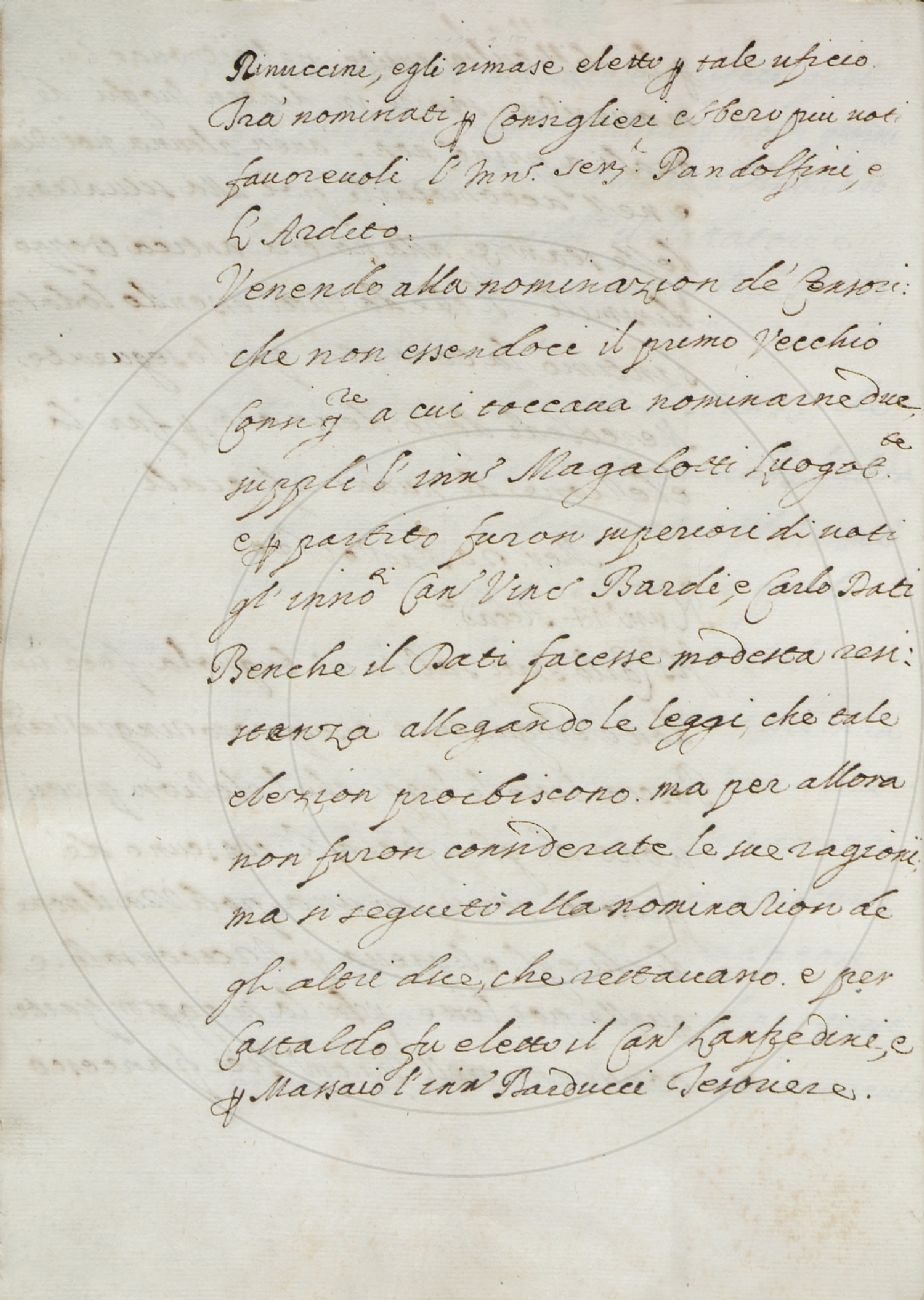 Rinuccini, egli rimase eletto ꝑ tale uficio.
Tra' nominati ꝑ Consiglieri ebbero piu uoti
fauoreuoli l' Inn.º Sen.ʳ Pandolfini, e
l' Ardito.
Venendo alla nominazion de' Censori:
che non essendoci il primo Vecchio
Consigʳᵉ a cui toccaua nominarne due,
supplì l' inn.º Magalotti Luogot.ᵗᵉ
e ꝑ partito furon superiori di uoti
gl' innoⁱ Can.º Vinc.º Bardi, e Carlo Dati
Benche il Dati facesse modesta resi:
stenza allegando le leggi, che tale
elezion proibiscono. ma per allora
non furon considerate le sue ragioni,
ma si seguitò alla nominazion de
gli altri due, che restauano. e per
Castaldo fu eletto il Can.º Lanfredini, e
ꝑ Massaio l' inn.º Barducci Tesoriere.